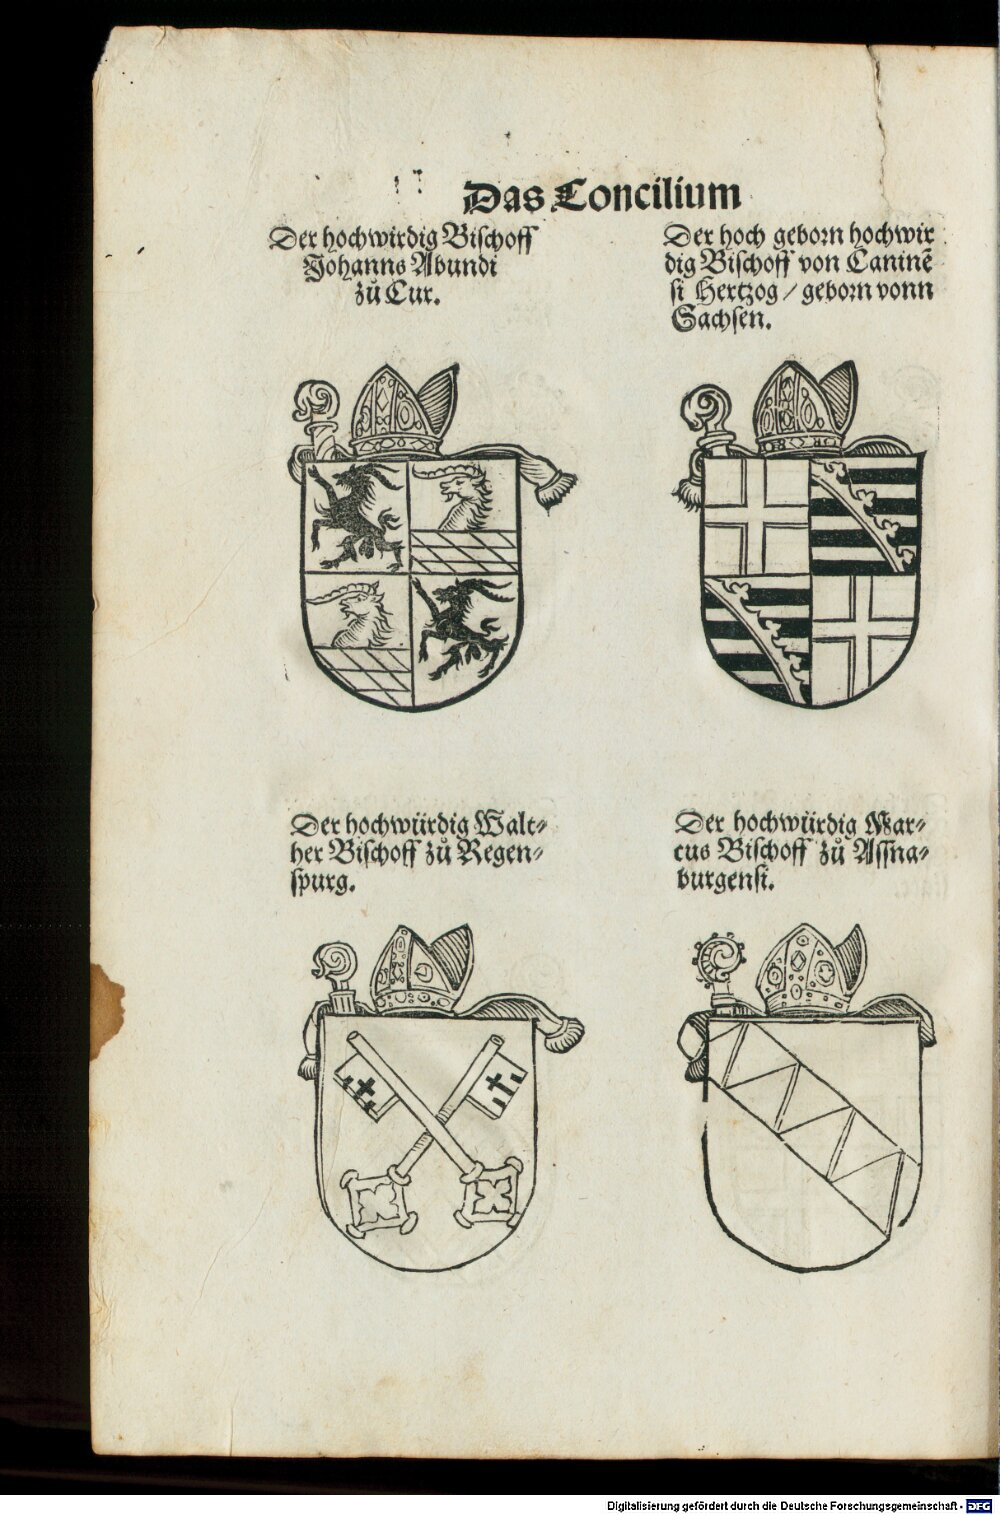 Das Concilium
Der hochwirdig Bischoff
Johanns Abundi
zů Cur.
Der hoch geborn hochwir
dig Bischoff von Caninē
si Hertzog / geborn vonn
Sachsen.
Der hochwürdig Walt⸗
her Bischoff zů Regen⸗
spurg.
Der hochwürdig Mar⸗
cus Bischoff zů Assna⸗
burgensi.
Digitalisierung gefördert durch die Deutsche Forschungsgemeinschaft - DFG